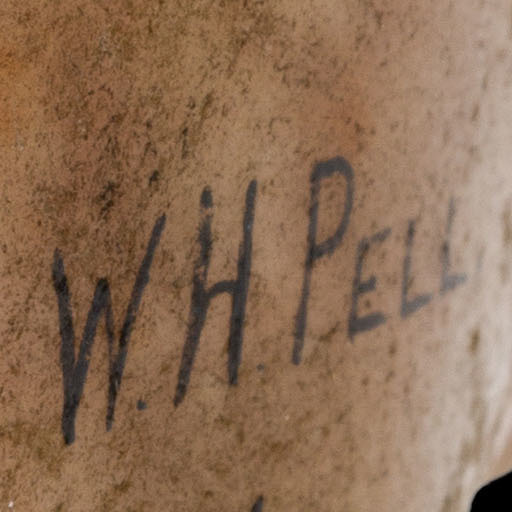 W. H. PELL